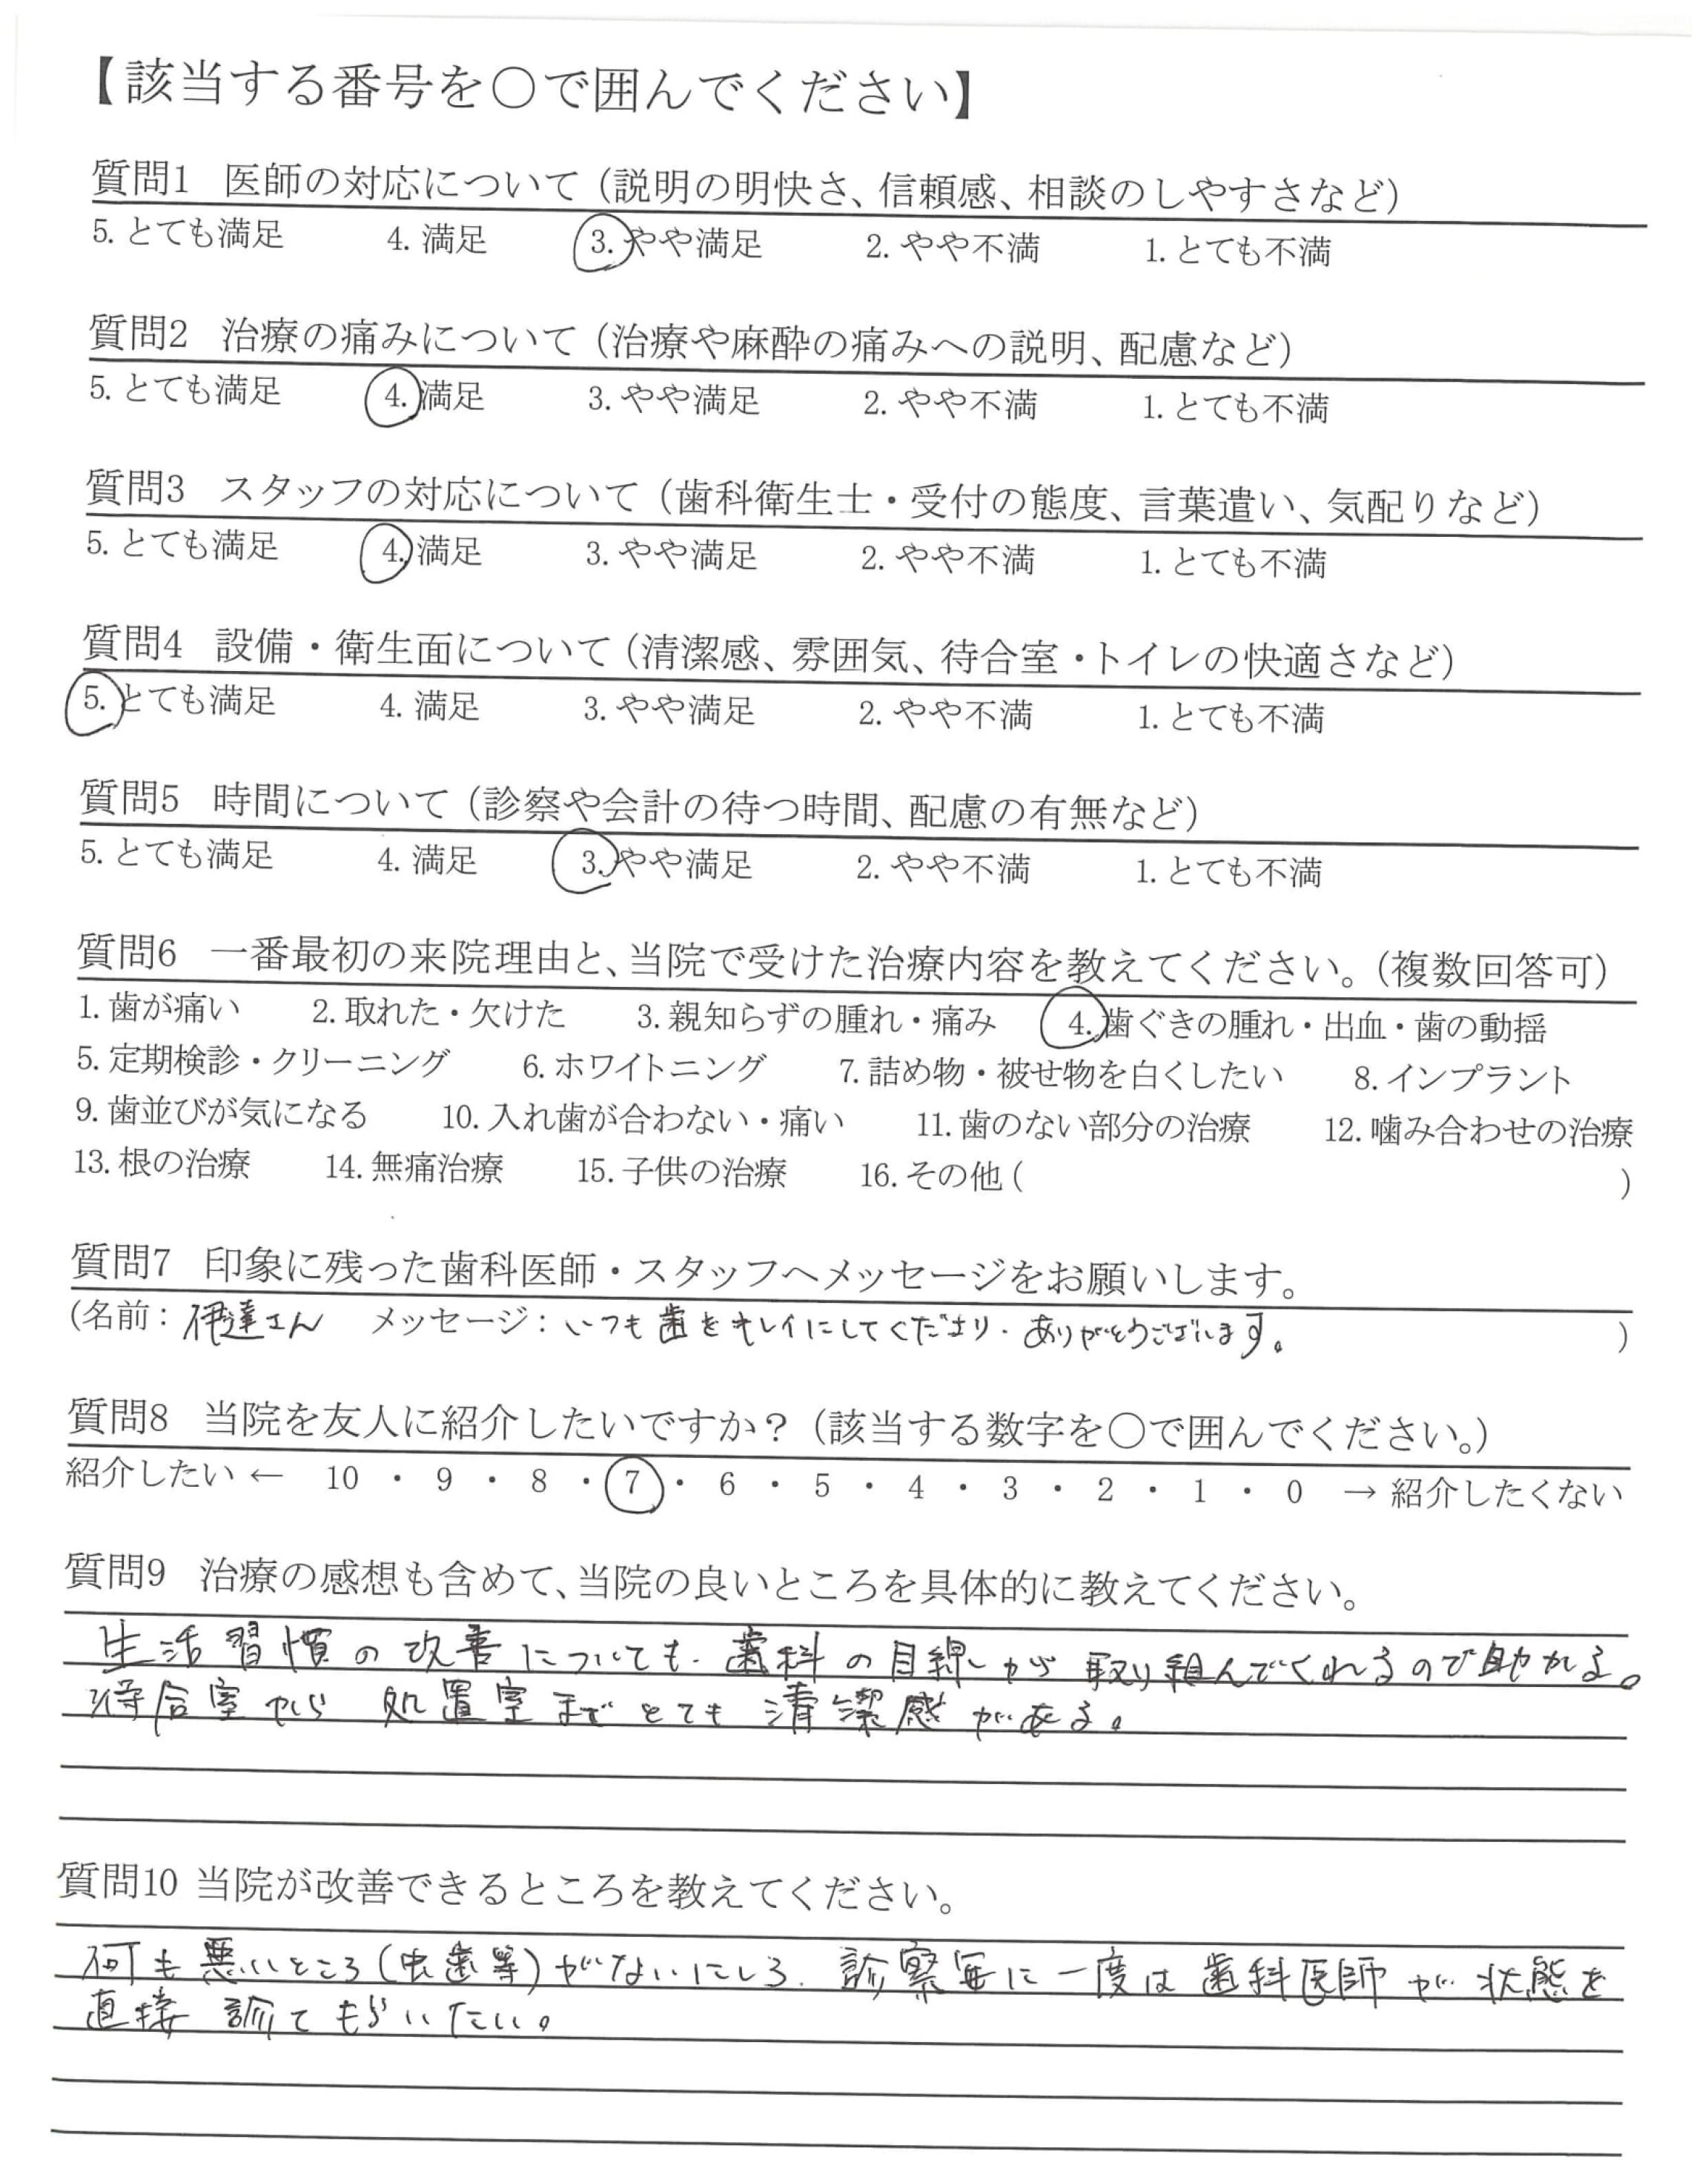 【該当する番号を○で囲んでください】
質問1 医師の対応について（説明の明快さ、信頼感、相談のしやすさなど）
5. とても満足 4. 満足 3. やや満足 2. やや不満 1. とても不満
質問2 治療の痛みについて（治療や麻酔の痛みへの説明、配慮など）
5. とても満足 4. 満足 3. やや満足 2. やや不満 1. とても不満
質問3 スタッフの対応について（歯科衛生士・受付の態度、言葉遣い、気配りなど）
5. とても満足 4. 満足 3. やや満足 2. やや不満 1. とても不満
質問4 設備・衛生面について（清潔感、雰囲気、待合室・トイレの快適さなど）
5. とても満足 4. 満足 3. やや満足 2. やや不満 1. とても不満
質問5 時間について（診察や会計の待つ時間、配慮の有無など）
5. とても満足 4. 満足 3. やや満足 2. やや不満 1. とても不満
質問6 一番最初の来院理由と、当院で受けた治療内容を教えてください。（複数回答可）
1. 歯が痛い 2. 取れた・欠けた 3. 親知らずの腫れ・痛み 4. 歯ぐきの腫れ・出血・歯の動揺
5. 定期検診・クリーニング 6. ホワイトニング 7. 詰め物・被せ物を白くしたい 8. インプラント
9. 歯並びが気になる 10. 入れ歯が合わない・痛い 11. 歯のない部分の治療 12. 噛み合わせの治療
13. 根の治療 14. 無痛治療 15. 子供の治療 16. その他（ ）
質問7 印象に残った歯科医師・スタッフへメッセージをお願いします。
（名前：伊達さん メッセージ：いつも歯をキレイにしてくださり、ありがとうございます。）
質問8 当院を友人に紹介したいですか？（該当する数字を○で囲んでください。）
紹介したい ← 10 ・ 9 ・ 8 ・ 7 ・ 6 ・ 5 ・ 4 ・ 3 ・ 2 ・ 1 ・ 0 → 紹介したくない
質問9 治療の感想も含めて、当院の良いところを具体的に教えてください。
生活習慣の改善についても、歯科の目線から取り組んでくれるので助かる。
待合室から処置室までとても清潔感がある。
質問10 当院が改善できるところを教えてください。
何も悪いところ（虫歯等）がないにしろ、診察毎に一度は歯科医師が状態を
直接診てもらいたい。